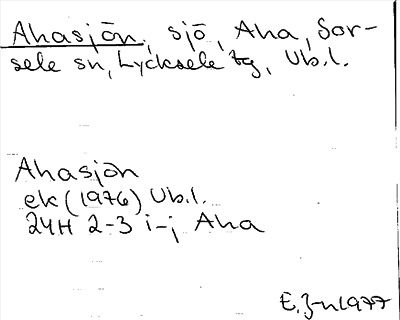 Ahasjön, sjö, Aha, Sor-
sele sn, Lycksele tg, Vb.l.
Ahasjön
ek (1976) Vb.l.
24H 2-3 i-j Aha
E.J-n 1977